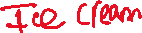 Ice cream